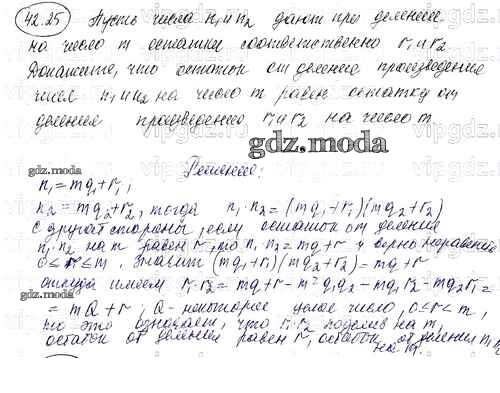 42.25 Пусть числа n₁ и n₂ дают при делении
на число m остатки соответственно r₁ и r₂
Докажите, что остаток от деления произведения
чисел n₁ и n₂ на число m равен остатку от
деления произведения r₁ и r₂ на число m
gdz.moda
gdz.moda
Решение:
n₁ = mq₁ + r₁;
n₂ = mq₂ + r₂, тогда n₁·n₂ = (mq₁ + r₁)(mq₂ + r₂)
С другой стороны, если остаток от деления
n₁·n₂ на m равен r, то n₁·n₂ = mq + r и верно неравенство
0 ≤ r ≤ m, Значит (mq₁ + r₁)(mq₂ + r₂) = mq + r
откуда имеем r₁·r₂ = mq + r - m²q₁q₂ - mq₁r₂ - mq₂r₁ =
= mQ + r, Q - некоторое целое число, 0 ≤ r < m,
но это означает, что r₁·r₂ поделив на m,
остаток от деления равен r, остаток от деления n₁n₂
на m.
gdz.moda